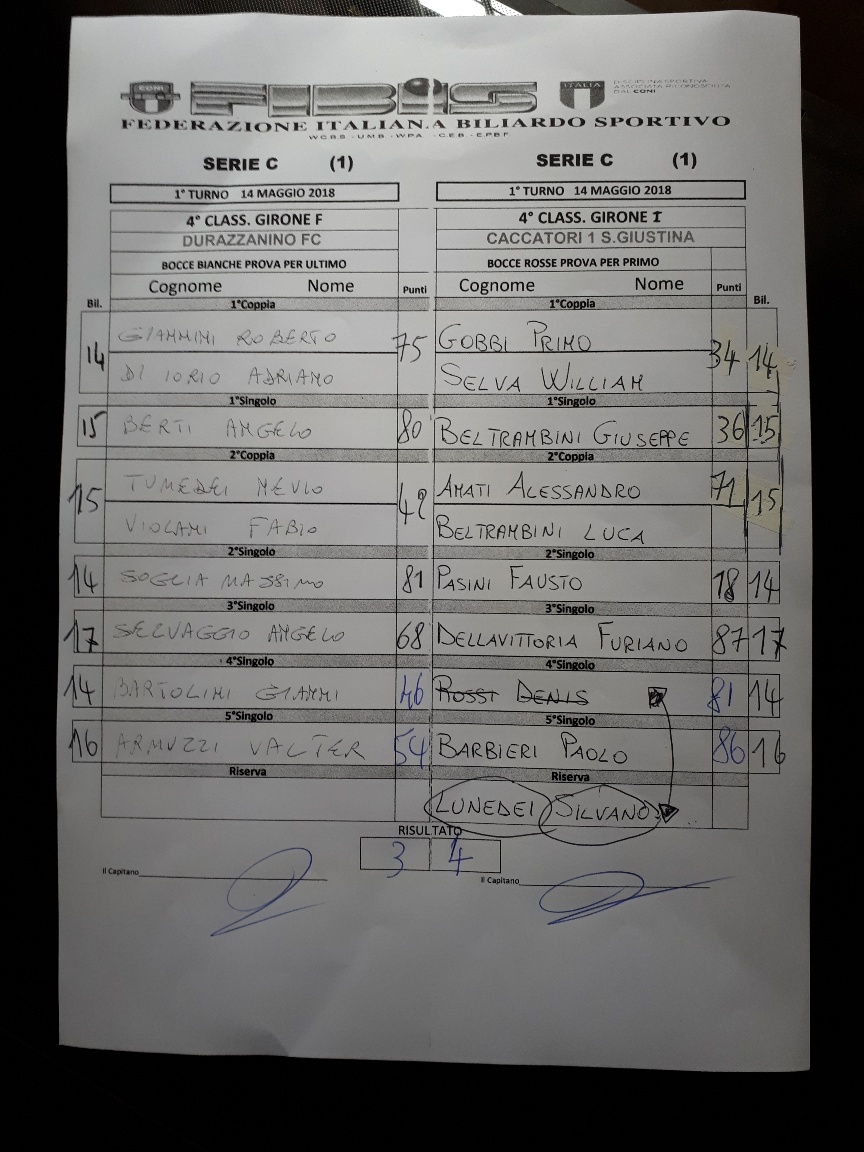 CONI FIBIS ITALIA DISCIPLINA SPORTIVA
ASSOCIATA RICONOSCIUTA
DAL CONI
FEDERAZIONE ITALIANA BILIARDO SPORTIVO
WCBS - UMB - WPA - CEB - EPBF
SERIE C (1) SERIE C (1)
1° TURNO 14 MAGGIO 2018 1° TURNO 14 MAGGIO 2018
4° CLASS. GIRONE F 4° CLASS. GIRONE I
DURAZZANINO FC CACCATORI 1 S.GIUSTINA
BOCCE BIANCHE PROVA PER ULTIMO BOCCE ROSSE PROVA PER PRIMO
Cognome Nome Punti Cognome Nome Punti
Bil. 1°Coppia 1°Coppia Bil.
14 GIAMMINI ROBERTO 75 GOBBI PRIMO 34 14
DI IORIO ADRIAMO SELVA WILLIAM
1°Singolo 1°Singolo
15 BERTI AMGELO 80 BELTRAMBINI GIUSEPPE 36 15
2°Coppia 2°Coppia
15 TUMEDEI MEVIO 42 AMATI ALESSANDRO 71 15
VIOLAMI FABIO BELTRAMBINI LUCA
2°Singolo 2°Singolo
14 SOGLIA MASSIMO 81 PASINI FAUSTO 18 14
3°Singolo 3°Singolo
17 SELVAGGIO AMGELO 68 DELLAVITTORIA FURIANO 87 17
4°Singolo 4°Singolo
14 BARTOLIMI GIAMMI 46 ROSSI DENIS 81 14
5°Singolo 5°Singolo
16 ARMUZZI VALTER 54 BARBIERI PAOLO 86 16
Riserva Riserva
LUNEDEI SILVANO
RISULTATO
3 4
Il Capitano Il Capitano